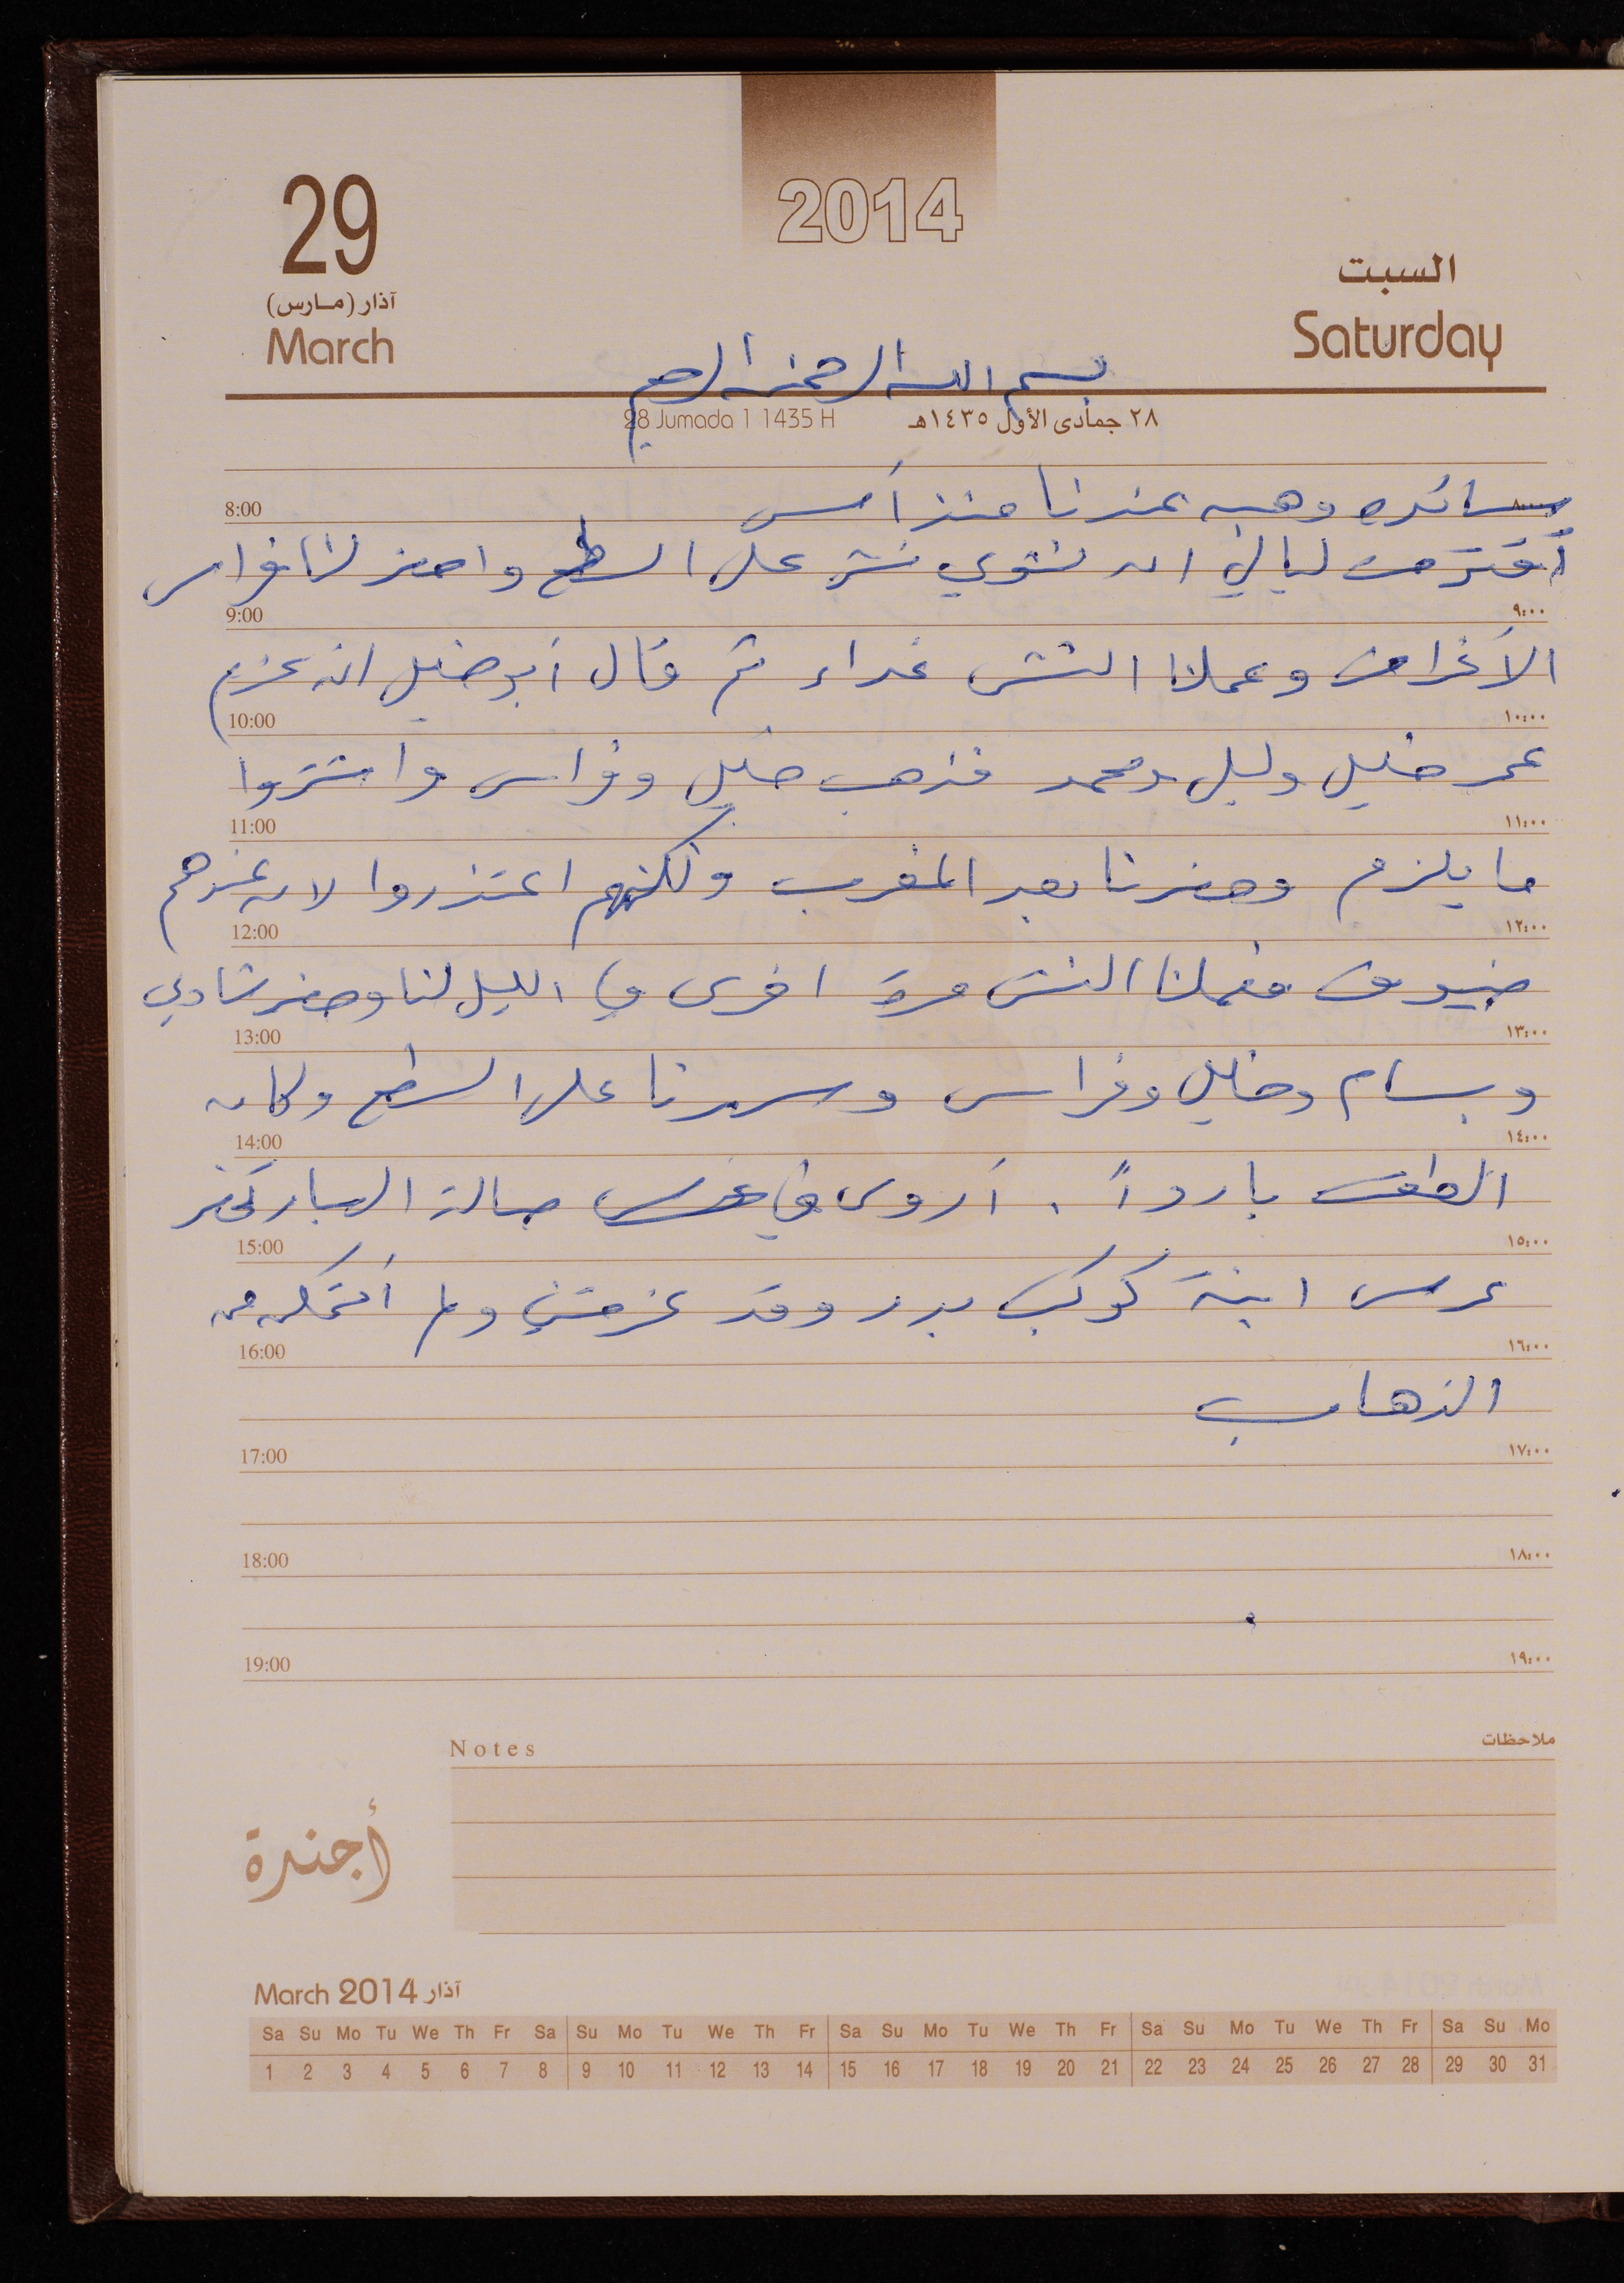 2014
29
السبت
آذار (مارس)
March
Saturday
بسم الله الرحمن الرحيم
28 Jumada 1 1435 H
٢٨ جمادى الأول ١٤٣٥هـ
وهبه عندنا منذ أمس
8:00 ٨:٠٠
أقترحت ليالي ان نشوي نتش على السطح واحضر لنا فراس
9:00 ٩:٠٠
الأغراض وعملنا النتش غداء ثم قال أبو خليل انه عزم
10:00 ١٠:٠٠
عمر خليل وليلى ومحمد فذهب خليل وفراس واشتروا
11:00 ١١:٠٠
ما يلزم وحضرنا بعد المغرب ولكنهم اعتذروا لان عندهم
12:00 ١٢:٠٠
ضيوف فعملنا النتش مرة اخرى في الليل لنا وحضر شادي
13:00 ١٣:٠٠
وبسام وخليل وفراس وسهرنا على السطح وكان
14:00 ١٤:٠٠
الطقس بارداً . أروى في عرس صالة
15:00 ١٥:٠٠
عرس ابنة كوكب بدر وقد عزمتني ولم أتمكن من
16:00 ١٦:٠٠
الذهاب
17:00 ١٧:٠٠
18:00 ١٨:٠٠
19:00 ١٩:٠٠
Notes ملاحظات
أجندة
March 2014 آذار
Sa Su Mo Tu We Th Fr Sa Su Mo Tu We Th Fr Sa Su Mo Tu We Th Fr Sa Su Mo Tu We Th Fr Sa Su Mo
1 2 3 4 5 6 7 8 9 10 11 12 13 14 15 16 17 18 19 20 21 22 23 24 25 26 27 28 29 30 31